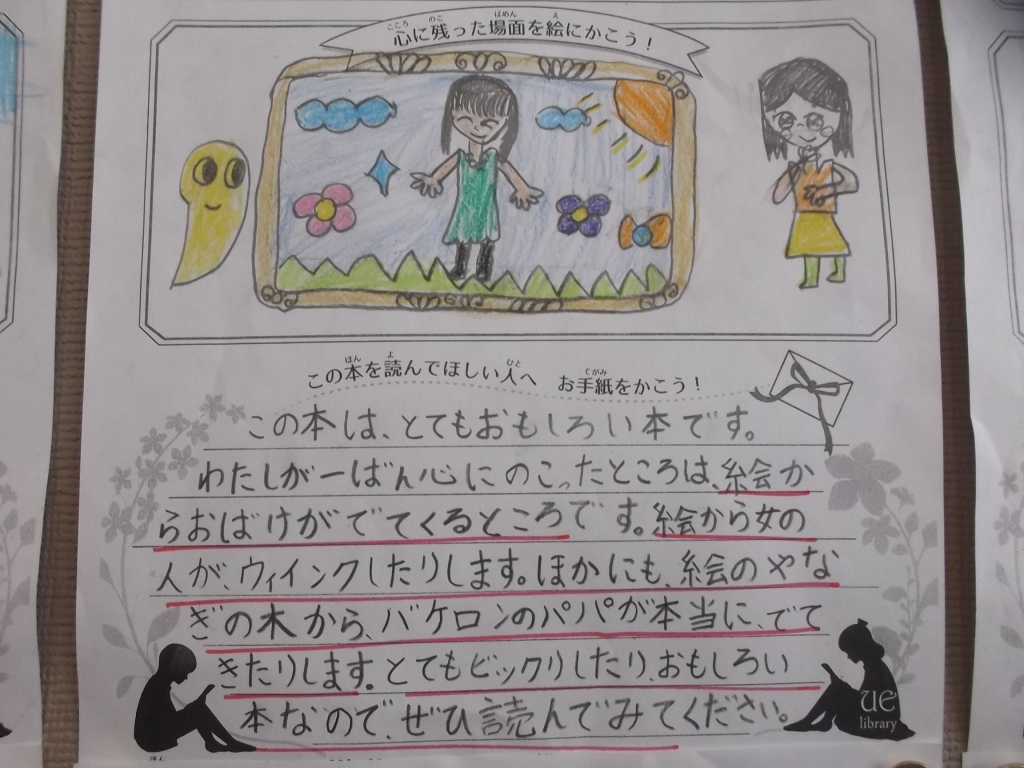 心に残った場面を絵にかこう！
この本を読んでほしい人へ お手紙をかこう！
この本は、とてもおもしろい本です。
わたしが一ばん心にのこったところは、絵か
らおばけがでてくるところです。絵から女の
人が、ウィインクしたりします。ほかにも、絵のやな
ぎの木から、バケロンのパパが本当に、でて
きたりします。とてもビックリしたり、おもしろい
本なので、ぜひ読んでみてください。
ue
library